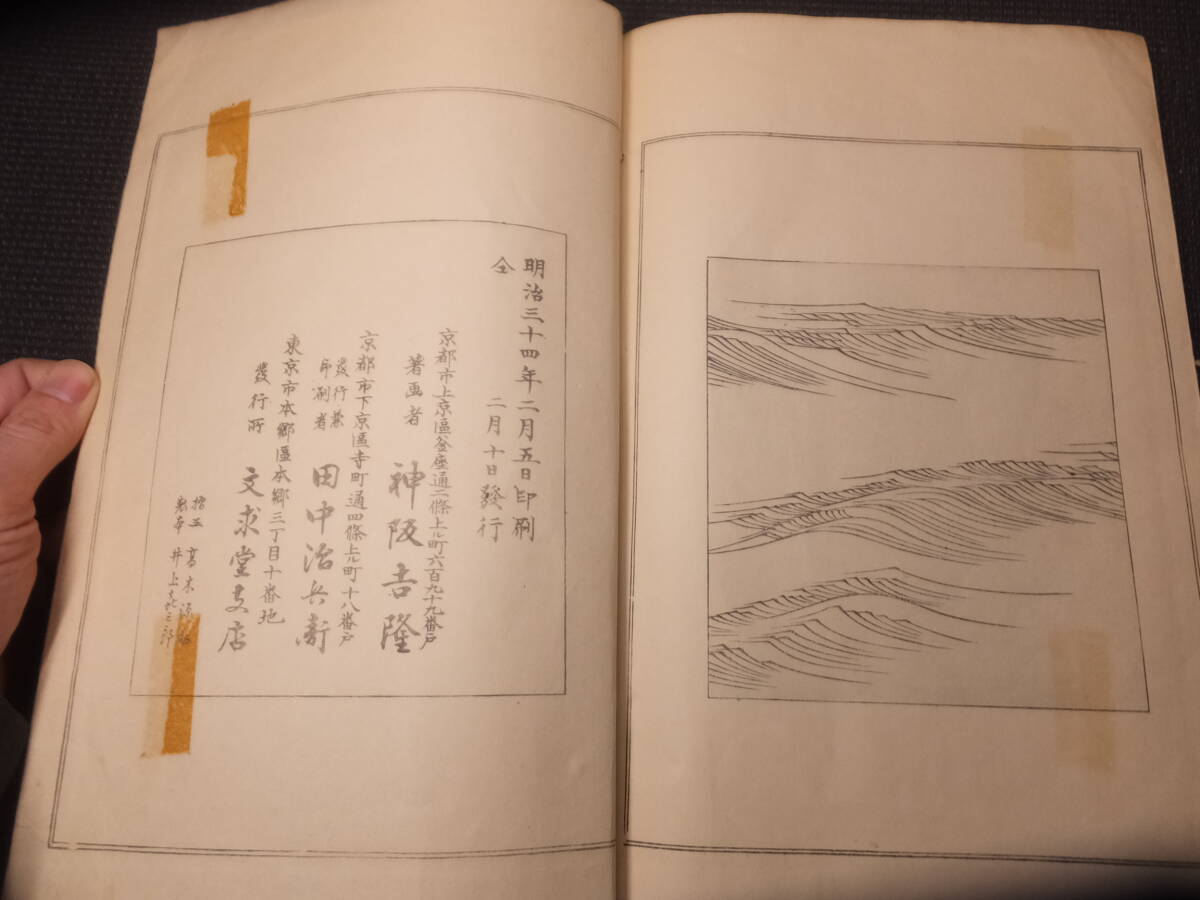 明治三十四年二月五日印刷
仝 二月十日發行
京都市上京區釜座通二條上ル町六百九十九番戸
著画者 神阪吉隆
京都市下京區寺町通四條上ル町十八番戸
發行兼印刷者 田中治兵衛
東京市本郷區本郷三丁目十番地
發行所 文求堂支店
髙木
井上 三郎